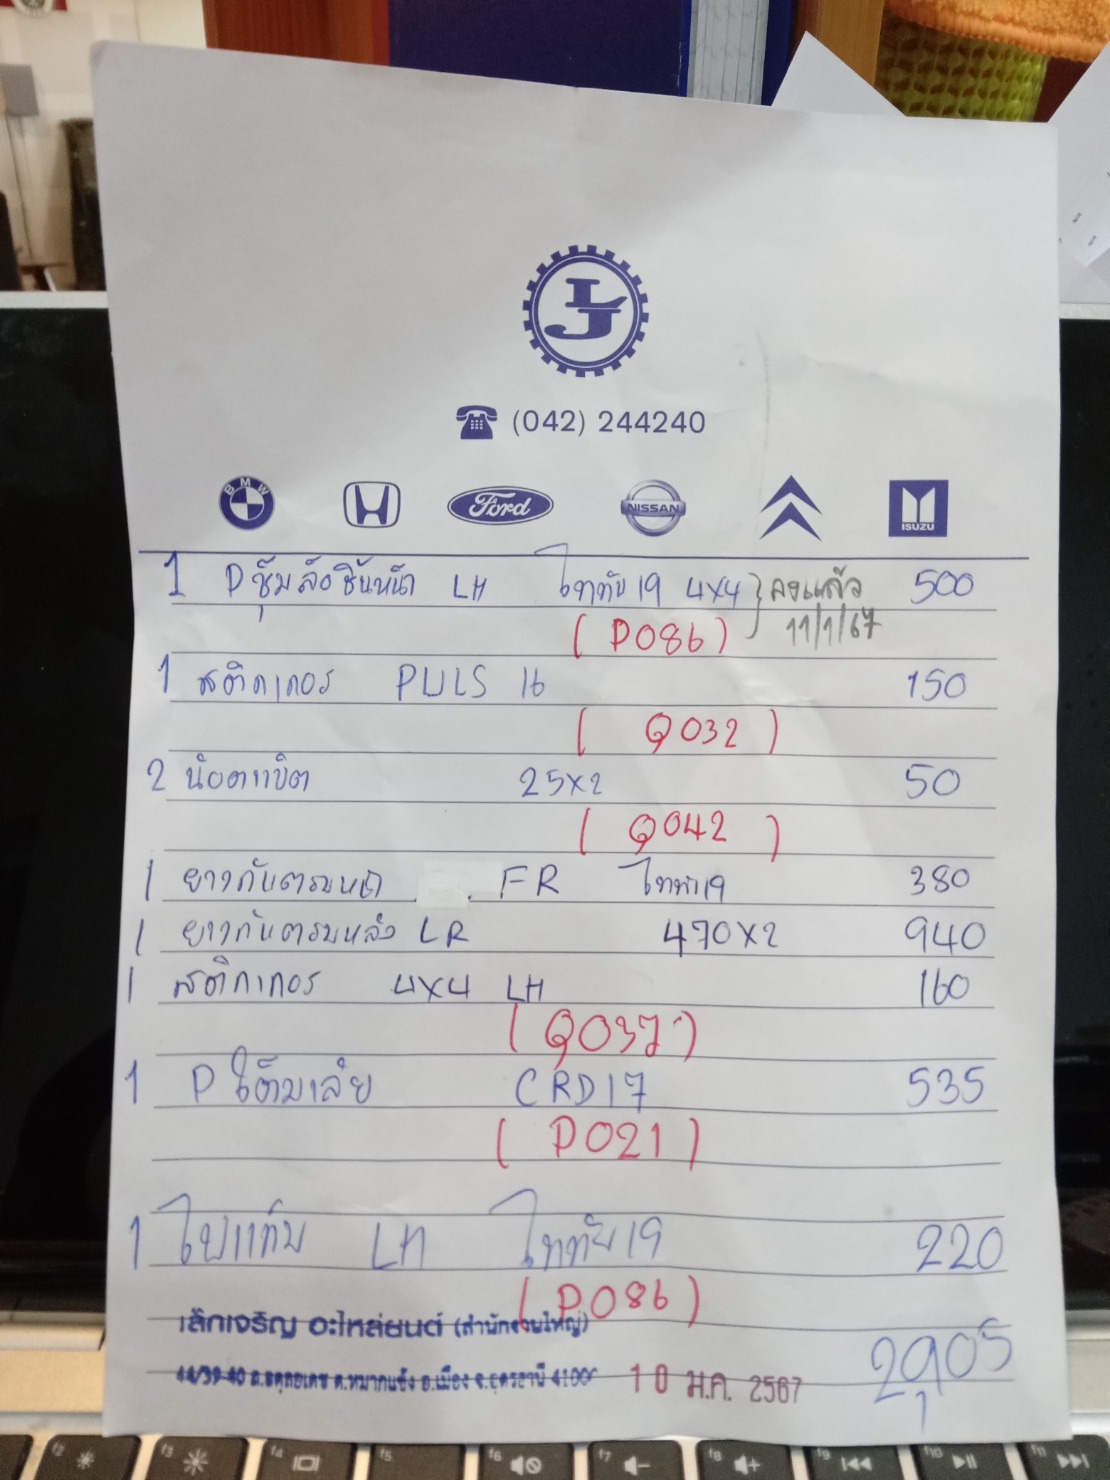 LJ
(042) 244240
BMW
Ford
NISSAN
ISUZU
1 P ซุ้มล้อชิ้นหน้า LH ไททัน 19 4X4 } ลงแล้ว 500
(P086) 11/1/67
1 สติกเกอร์ PULS 16 150
(Q032)
2 น๊อตแบิต 25X2 50
(Q042)
1 ยางกันตรบหน้า FR ไททัน 19 380
1 ยางกันตรบหลัง LR 470X2 940
1 สติกเกอร์ 4X4 LH 160
(Q037)
1 P CRD17 535
(P021)
1 ไฟแก้ม LH ไททัน 19 220
(P086)
เล็กเจริญ อะไหล่ยนต์ (สำนักงานใหญ่)
44/39-40 ถ.อดุลยเดช ต.หมากแข้ง อ.เมือง จ.อุดรธานี 41000 10 ม.ค. 2567
2,905
f2 f3 f4 f5 f6 f7 f8 f9 f10 f11